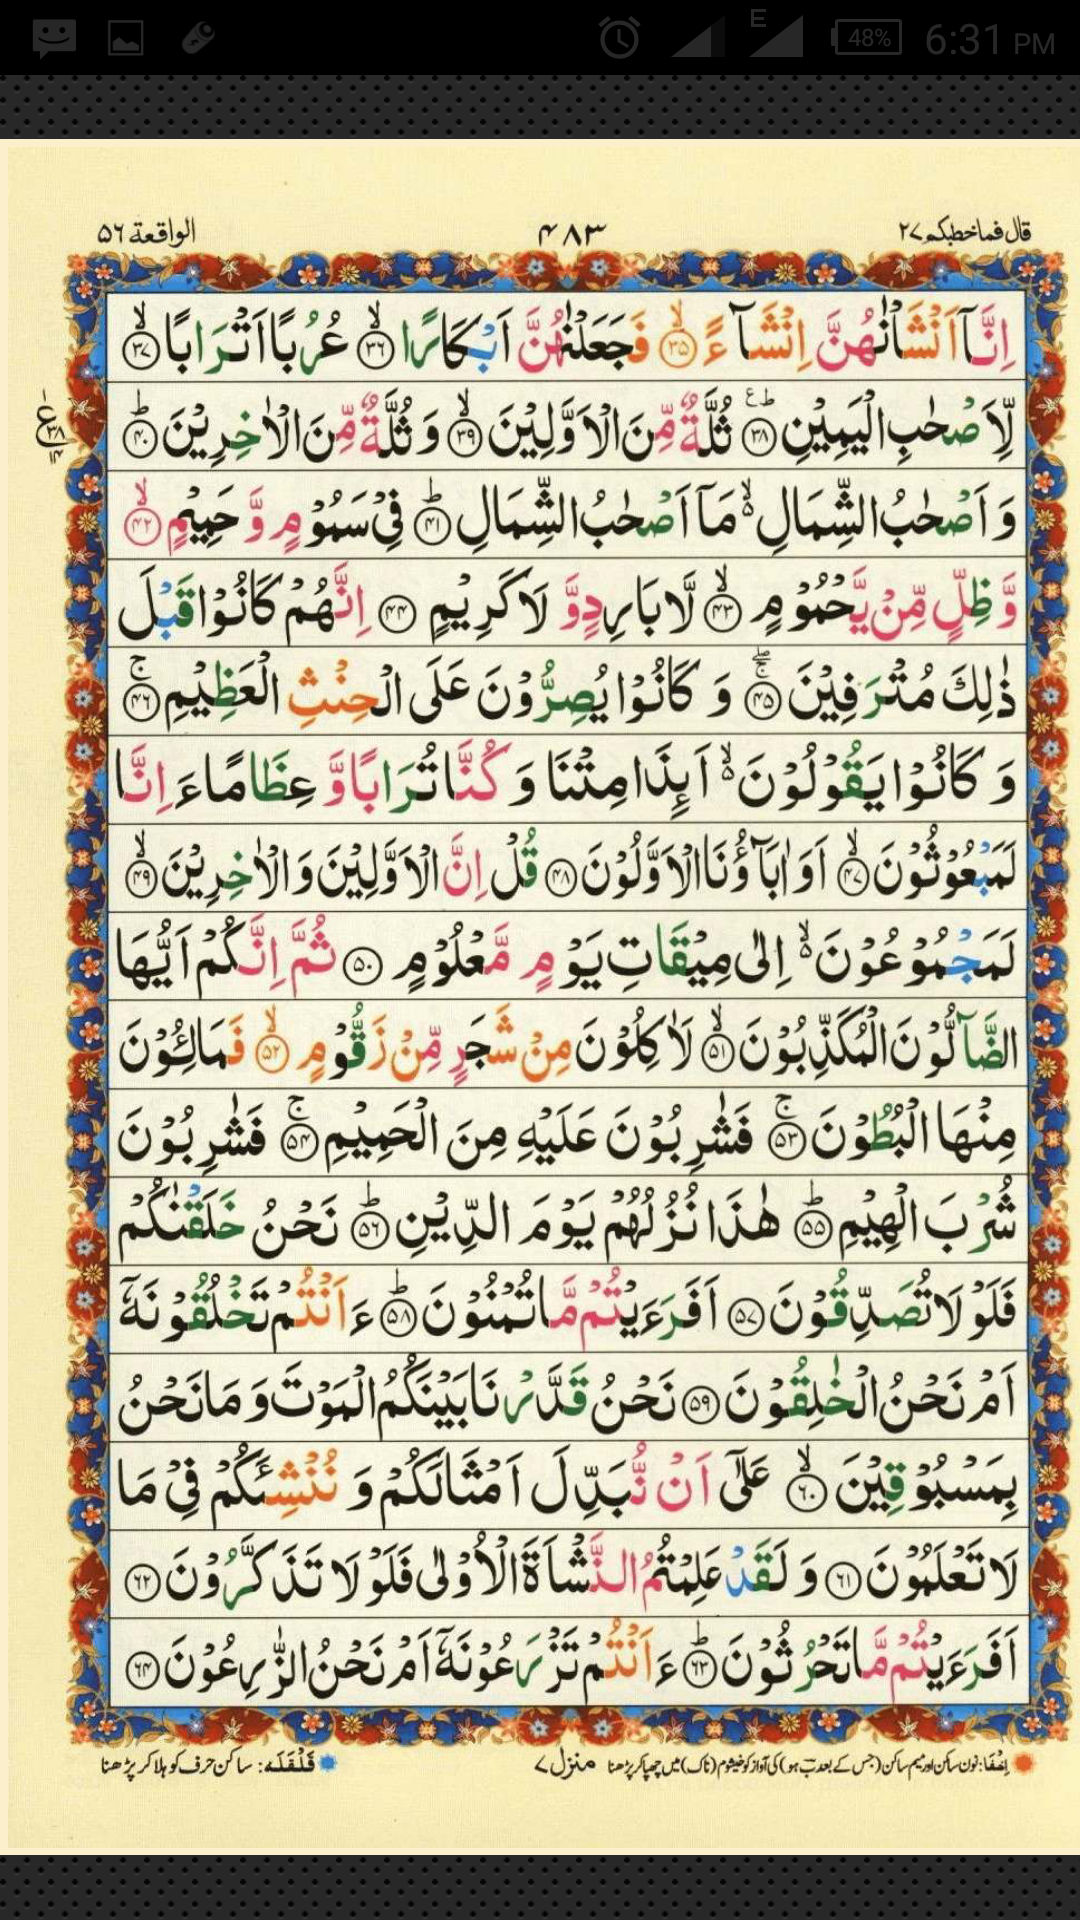 48%
E
6:31 PM
قال فماخطبکم ۲۷
۴۸۳
الواقعة ۵۶
اِنَّاۤ اَنْشَاْنٰهُنَّ اِنْشَآءً ۙ‏﴿۳۵﴾ فَجَعَلْنٰهُنَّ اَبْكَارًا ۙ‏﴿۳۶﴾ عُرُبًا اَتْرَابًا ۙ‏﴿۳۷﴾
لِّاَصْحٰبِ الْيَمِيْنِ ؕ‏﴿۳۸﴾ ثُلَّةٌ مِّنَ الْاَوَّلِيْنَ ۙ‏﴿۳۹﴾ وَ ثُلَّةٌ مِّنَ الْاٰخِرِيْنَ ؕ‏﴿۴۰﴾
ع
۳۸
۱۴
وَ اَصْحٰبُ الشِّمَالِ ۙ۬ مَاۤ اَصْحٰبُ الشِّمَالِ ؕ‏﴿۴۱﴾ فِيْ سَمُوْمٍ وَّ حَمِيْمٍ ۙ‏﴿۴۲﴾
وَّ ظِلٍّ مِّنْ يَّحْمُوْمٍ ۙ‏﴿۴۳﴾ لَّا بَارِدٍ وَّ لَا كَرِيْمٍ ‏﴿۴۴﴾ اِنَّهُمْ كَانُوْا قَبْلَ
ذٰلِكَ مُتْرَفِيْنَ ۚۖ‏﴿۴۵﴾ وَ كَانُوْا يُصِرُّوْنَ عَلَى الْحِنْثِ الْعَظِيْمِ ۚ‏﴿۴۶﴾
وَ كَانُوْا يَقُوْلُوْنَ ۙ۬ اَئِذَا مِتْنَا وَ كُنَّا تُرَابًا وَّ عِظَامًا ءَ اِنَّا
لَمَبْعُوْثُوْنَ ۙ‏﴿۴۷﴾ اَوَ اٰبَآؤُنَا الْاَوَّلُوْنَ ‏﴿۴۸﴾ قُلْ اِنَّ الْاَوَّلِيْنَ وَ الْاٰخِرِيْنَ ۙ‏﴿۴۹﴾
لَمَجْمُوْعُوْنَ ۙ۬ اِلٰى مِيْقَاتِ يَوْمٍ مَّعْلُوْمٍ ‏﴿۵۰﴾ ثُمَّ اِنَّكُمْ اَيُّهَا
الضَّآلُّوْنَ الْمُكَذِّبُوْنَ ۙ‏﴿۵۱﴾ لَاٰكِلُوْنَ مِنْ شَجَرٍ مِّنْ زَقُّوْمٍ ۙ‏﴿۵۲﴾ فَمَالِـُٔوْنَ
مِنْهَا الْبُطُوْنَ ۚ‏﴿۵۳﴾ فَشٰرِبُوْنَ عَلَيْهِ مِنَ الْحَمِيْمِ ۚ‏﴿۵۴﴾ فَشٰرِبُوْنَ
شُرْبَ الْهِيْمِ ؕ‏﴿۵۵﴾ هٰذَا نُزُلُهُمْ يَوْمَ الدِّيْنِ ؕ‏﴿۵۶﴾ نَحْنُ خَلَقْنٰكُمْ
فَلَوْ لَا تُصَدِّقُوْنَ ‏﴿۵۷﴾ اَفَرَءَيْتُمْ مَّا تُمْنُوْنَ ؕ‏﴿۵۸﴾ ءَ اَنْتُمْ تَخْلُقُوْنَهٗۤ
اَمْ نَحْنُ الْخٰلِقُوْنَ ‏﴿۵۹﴾ نَحْنُ قَدَّرْنَا بَيْنَكُمُ الْمَوْتَ وَ مَا نَحْنُ
بِمَسْبُوْقِيْنَ ۙ‏﴿۶۰﴾ عَلٰۤى اَنْ نُّبَدِّلَ اَمْثَالَكُمْ وَ نُنْشِئَكُمْ فِيْ مَا
لَا تَعْلَمُوْنَ ‏﴿۶۱﴾ وَ لَقَدْ عَلِمْتُمُ النَّشْاَةَ الْاُوْلٰى فَلَوْ لَا تَذَكَّرُوْنَ ‏﴿۶۲﴾
اَفَرَءَيْتُمْ مَّا تَحْرُثُوْنَ ؕ‏﴿۶۳﴾ ءَ اَنْتُمْ تَزْرَعُوْنَهٗۤ اَمْ نَحْنُ الزّٰرِعُوْنَ ‏﴿۶۴﴾
اِخفَا: نون ساکن اور میم ساکن (جس کے بعد ب ہو) کی آواز کو خیشوم (ناک) میں چھپا کر پڑھنا منزل ۷ قَلْقَلَه: ساکن حرف کو ہلا کر پڑھنا